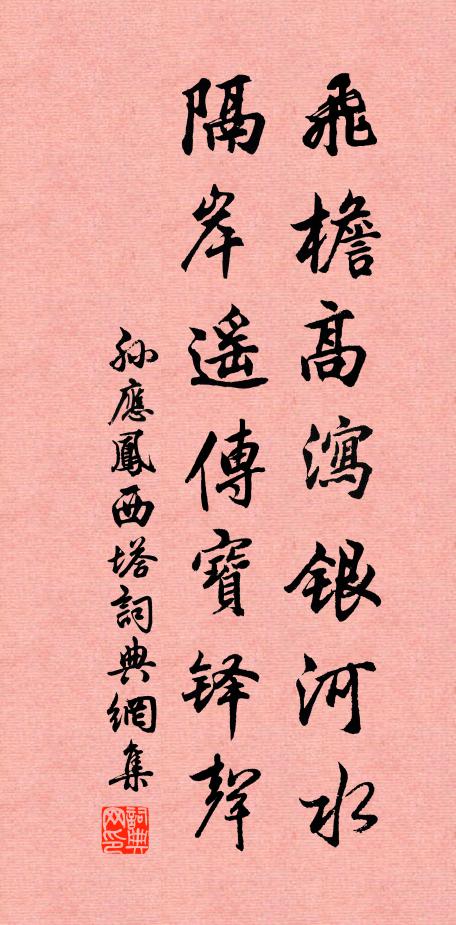 飛檐高瀉銀河水
隔岸遥傳寶铎聲
孫應鳳西塔詞典網集
詞典网印